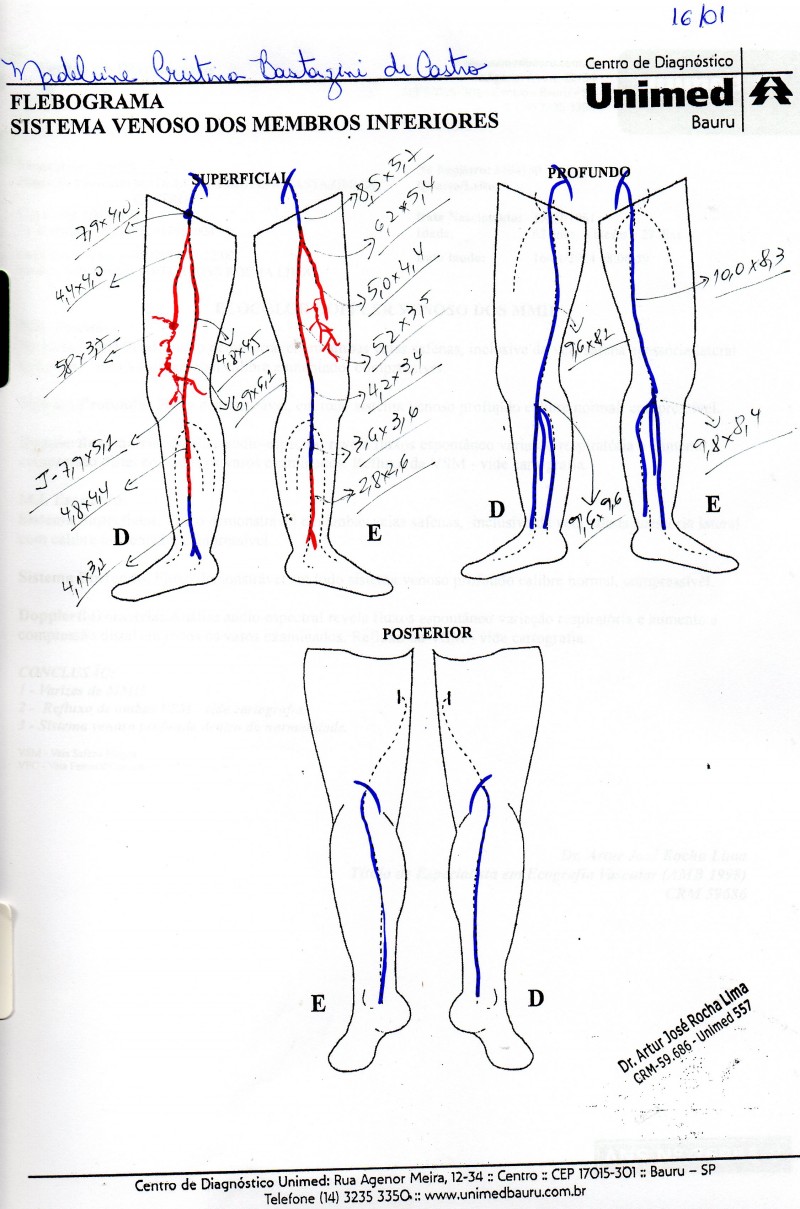 16/01
Madeleine Cristina Bastazini de Castro
Centro de Diagnóstico
Unimed
Bauru
FLEBOGRAMA
SISTEMA VENOSO DOS MEMBROS INFERIORES
SUPERFICIAL
PROFUNDO
7,9x4,0
4,4x4,0
58x3,7
J-7,9x5,1
4,8x4,4
4,1x3,2
4,8x4,5
6,9x6,1
8,5x5,7
6,2x5,4
5,0x4,4
5,2x3,5
4,2x3,4
3,6x3,6
2,8x2,6
9,6x8,1
9,6x9,6
10,0x8,3
9,8x8,4
D
E
D
E
POSTERIOR
E
D
Dr. Artur José Rocha Lima
CRM-59.686 - Unimed 557
Centro de Diagnóstico Unimed: Rua Agenor Meira, 12-34 :: Centro :: CEP 17015-301 :: Bauru – SP
Telefone (14) 3235 3350 :: www.unimedbauru.com.br